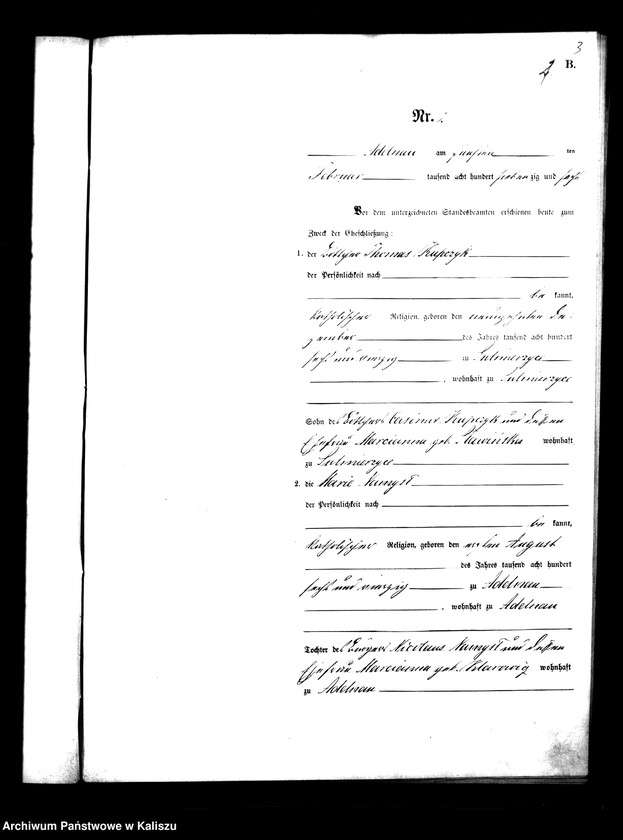 3
2 B.
Nr.
Adelnau am ten
Februar tausend acht hundert siebenzig und sechs
Vor dem unterzeichneten Standesbeamten erschienen heute zum
Zweck der Eheschließung:
1. der Böttcher Thomas Kupczyk
der Persönlichkeit nach
be kannt,
katholischer Religion, geboren den neunzehnten De-
zember des Jahres tausend acht hundert
sechs und vierzig zu Sulmierzyce
, wohnhaft zu Sulmierzyce
Sohn des Böttchers Casimir Kupczyk und dessen
Ehefrau Marcianna geb. wohnhaft
zu Sulmierzyce
2. die Marie Namyst
der Persönlichkeit nach
be kannt,
katholischer Religion, geboren den ersten August
des Jahres tausend acht hundert
sechs und vierzig zu Adelnau
, wohnhaft zu Adelnau
Tochter des Bürgers Nicolaus Namyst und dessen
Ehefrau Marcianna geb. wohnhaft
zu Adelnau
Archiwum Państwowe w Kaliszu